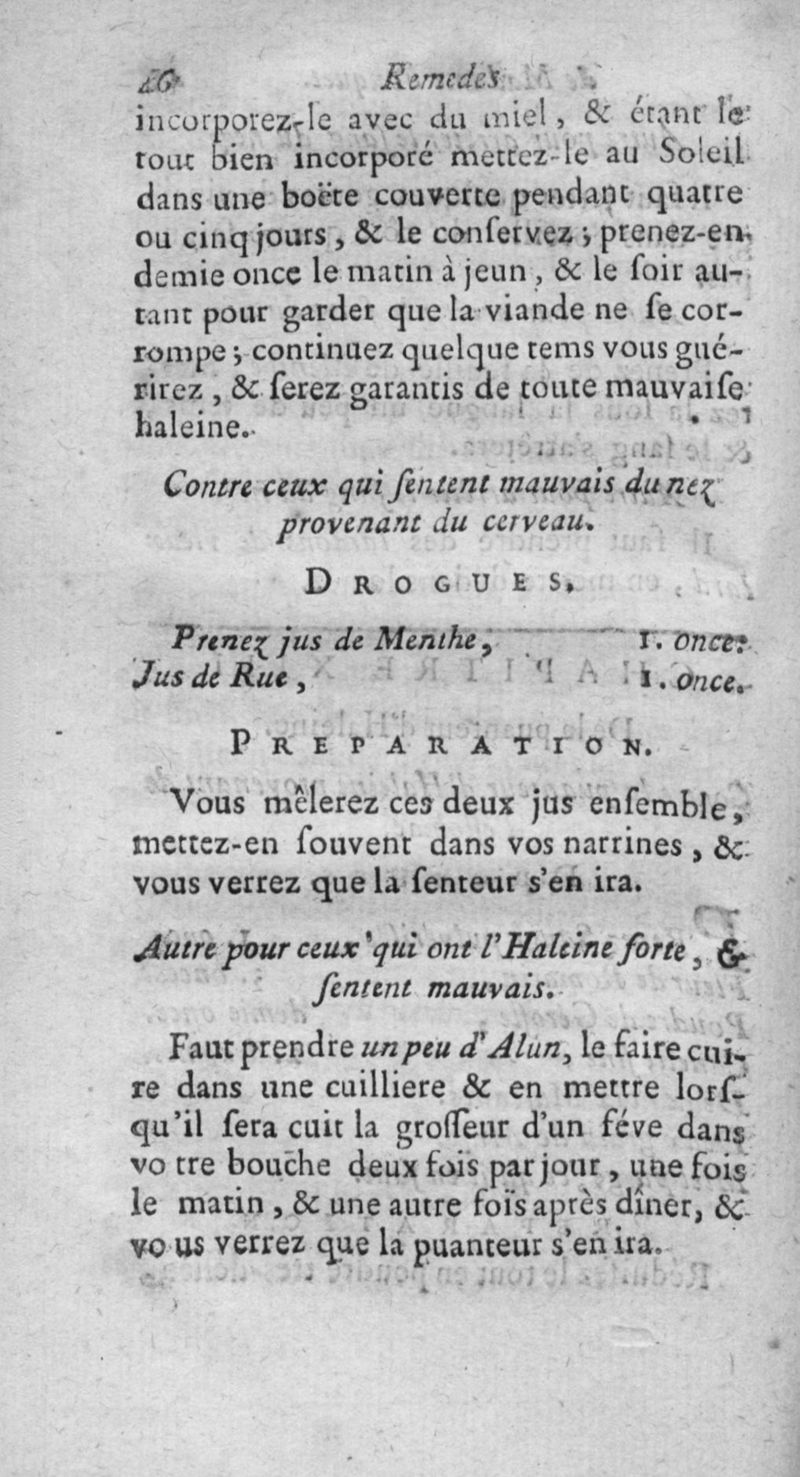 26 Remedes
incorporez-le avec du miel, & étant le
tout bien incorporé mettez-le au Soleil
dans une boëte couverte pendant quatre
ou cinq jours, & le conſervez; prenez-en
demie once le matin à jeun, & le ſoir au-
tant pour garder que la viande ne ſe cor-
rompe; continuez quelque tems vous gué-
rirez, & ſerez garantis de toute mauvaiſe
haleine.
Contre ceux qui ſentent mauvais du nez
provenant du cerveau.
DROGUES.
Prenez jus de Menthe, 1. once.
Jus de Rue, 1. once.
PREPARATION.
Vous mêlerez ces deux jus enſemble,
mettez-en ſouvent dans vos narrines, &
vous verrez que la ſenteur s'en ira.
Autre pour ceux qui ont l'Haleine forte, &
ſentent mauvais.
Faut prendre un peu d'Alun, le faire cui-
re dans une cuilliere & en mettre lorſ-
qu'il ſera cuit la groſſeur d'un féve dans
vo tre bouche deux fois par jour, une fois
le matin, & une autre foïs après dîner, &
vo us verrez que la puanteur s'en ira.